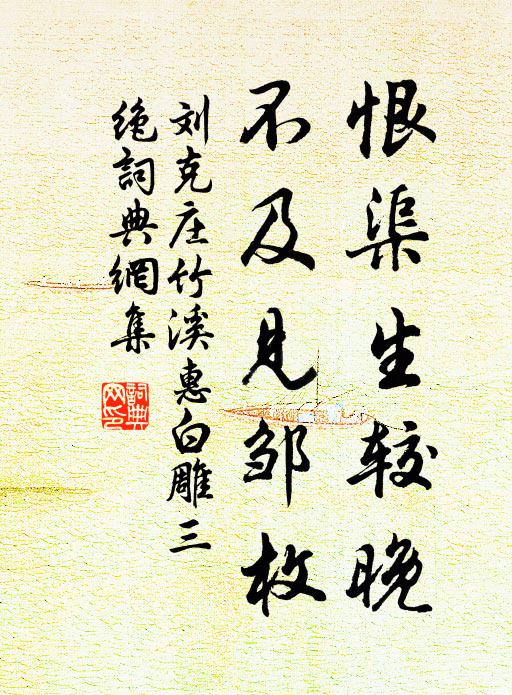 恨渠生较晚
不及见邹枚
刘克庄竹溪惠白雕三
绝詞典網集
詞典
网印